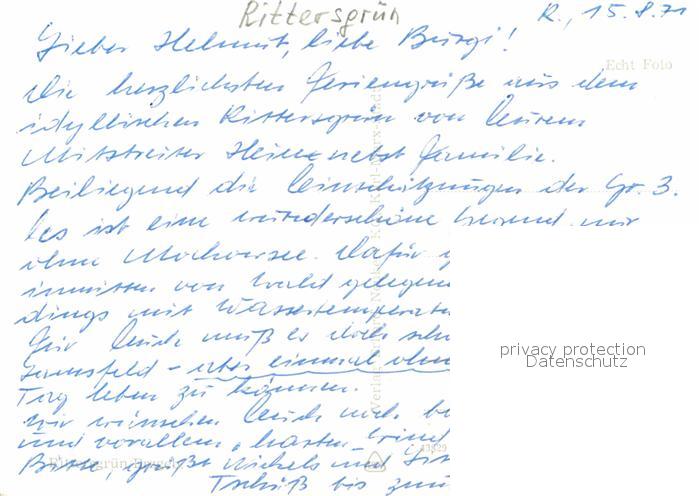 Rittersgrün
R., 15.8.71
Lieber Helmut, liebe Burgi!
Echt Foto
Die herzlichsten Feriengrüße aus dem
idyllischen Rittersgrün von Eurem
Mitstreiter Heinz nebst Familie.
Beiliegend die Einschätzungen der Gr. 3.
Es ist eine wunderschöne Gegend nur
ohne Dafür
inmitten von Wald gelegen
dings mit Wassertemperat
Für Euch muß es doch sch
- aber einmal ohne
Tag leben zu können.
Wir wünschen Euch noch
und vorallem
Bitte, grüße Michels und
Tschüß bis zum
privacy protection
Datenschutz